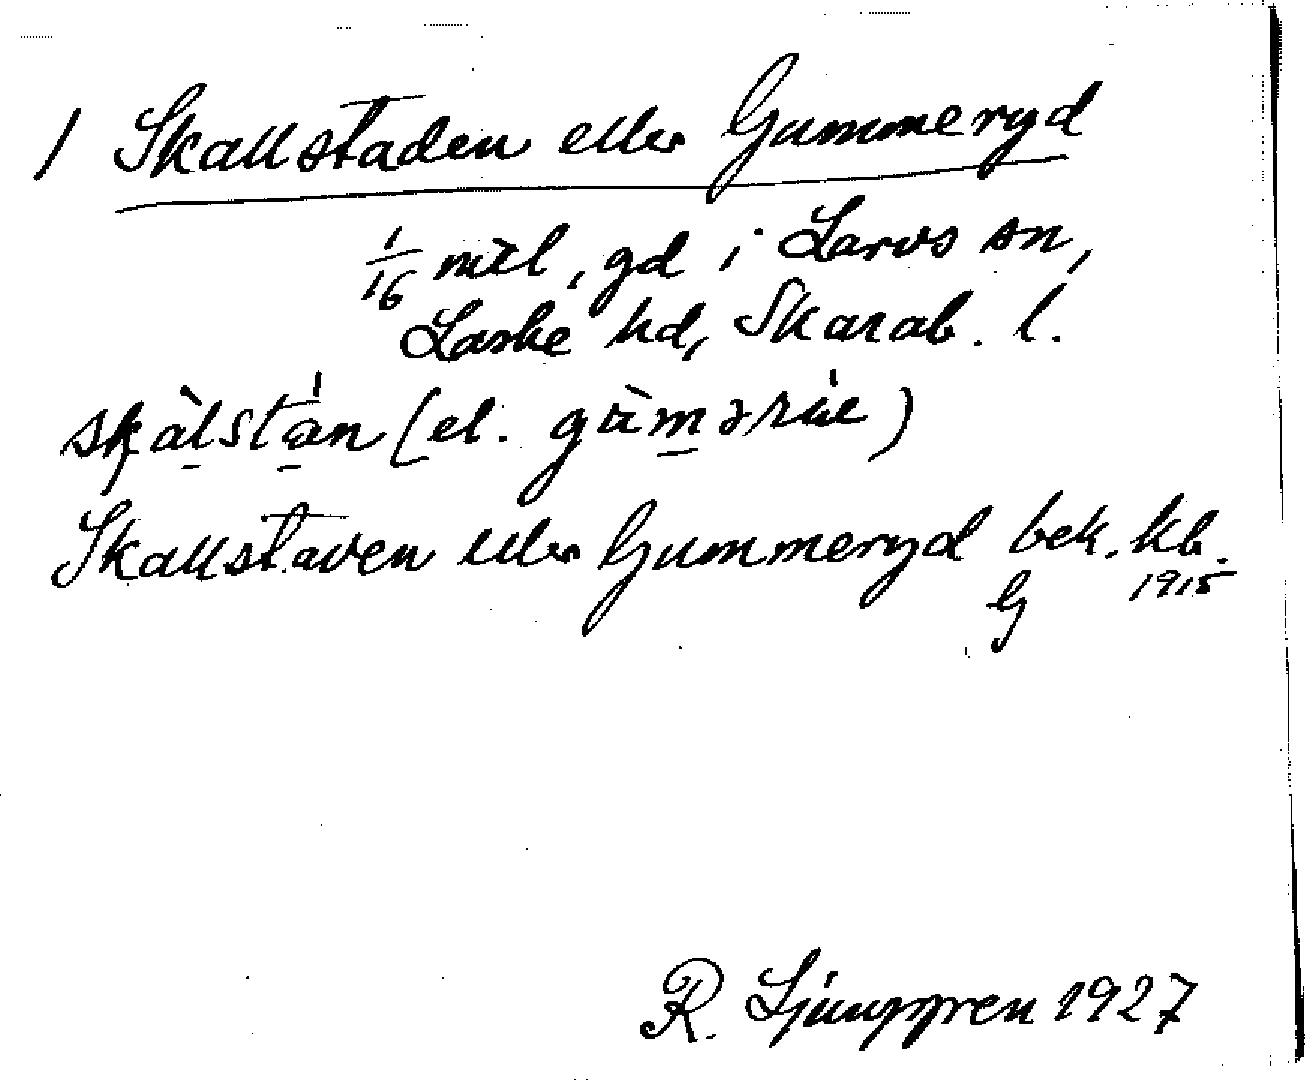 / Skallstaden eller Gummeryd
1/16 mtl, gd i Larvs sn,
Laske hd, Skarab. l.
skàlstán (el. gùməríe)
Skallstaven eller Gummeryd bek. kb. 1915
G
R. Ljunggren 1927